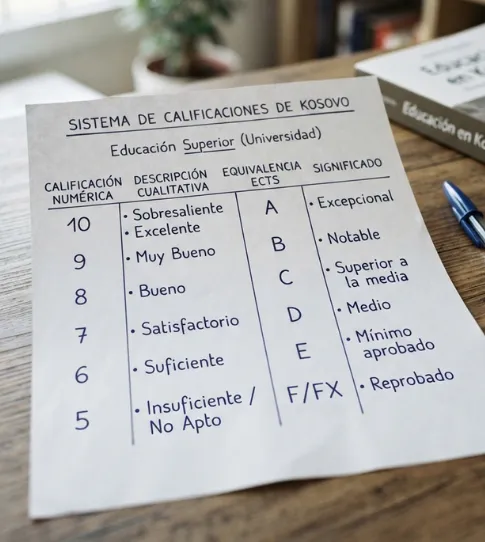 SISTEMA DE CALIFICACIONES DE KOSOVO
Educación Superior (Universidad)
CALIFICACIÓN NUMÉRICA DESCRIPCIÓN CUALITATIVA EQUIVALENCIA ECTS SIGNIFICADO
10 • Sobresaliente • Excelente A • Excepcional
9 • Muy Bueno B • Notable
8 • Bueno C • Superior a la media
7 • Satisfactorio D • Medio
6 • Suficiente E • Mínimo aprobado
5 • Insuficiente / No Apto F/FX • Reprobado
Educación en